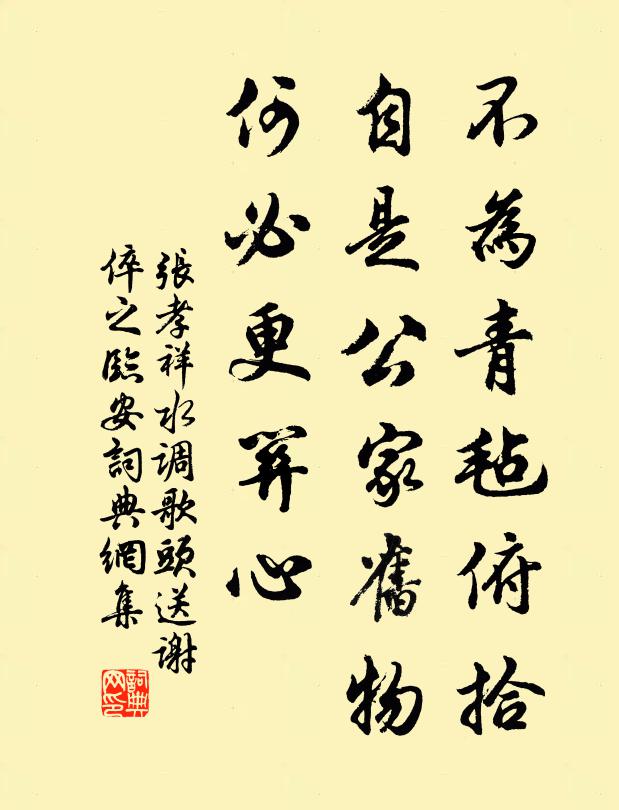 不為青毡俯拾
自是公家舊物
何必更關心
張孝祥水调歌頭送谢
倅之臨安詞典網集
詞典
网印